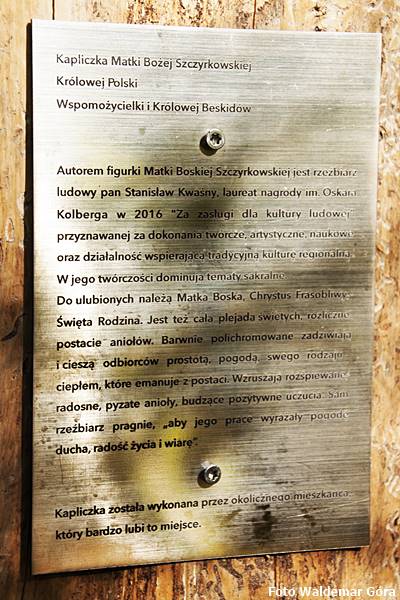 Kapliczka Matki Bożej Szczyrkowskiej
Królowej Polski
Wspomożycielki i Królowej Beskidów
Autorem figurki Matki Boskiej Szczyrkowskiej jest rzeźbiarz
ludowy pan Stanisław Kwaśny, laureat nagrody im. Oskara
Kolberga w 2016 "Za zasługi dla kultury ludowej"
przyznawanej za dokonania twórcze, artystyczne, naukowe
oraz działalność wspierającą tradycyjną kulturę regionalną.
W jego twórczości dominują tematy sakralne.
Do ulubionych należą Matka Boska, Chrystus Frasobliwy,
Święta Rodzina. Jest też cała plejada świętych, rozliczne
postacie aniołów. Barwnie polichromowane zadziwiają
i cieszą odbiorców prostotą, pogodą, swego rodzaju
ciepłem, które emanuje z postaci. Wzruszają rozśpiewane,
radosne, pyzate anioły, budzące pozytywne uczucia. Sam
rzeźbiarz pragnie, „aby jego prace wyrażały pogodę
ducha, radość życia i wiarę”.
Kapliczka została wykonana przez okolicznego mieszkańca,
który bardzo lubi to miejsce.
Foto Waldemar Góra